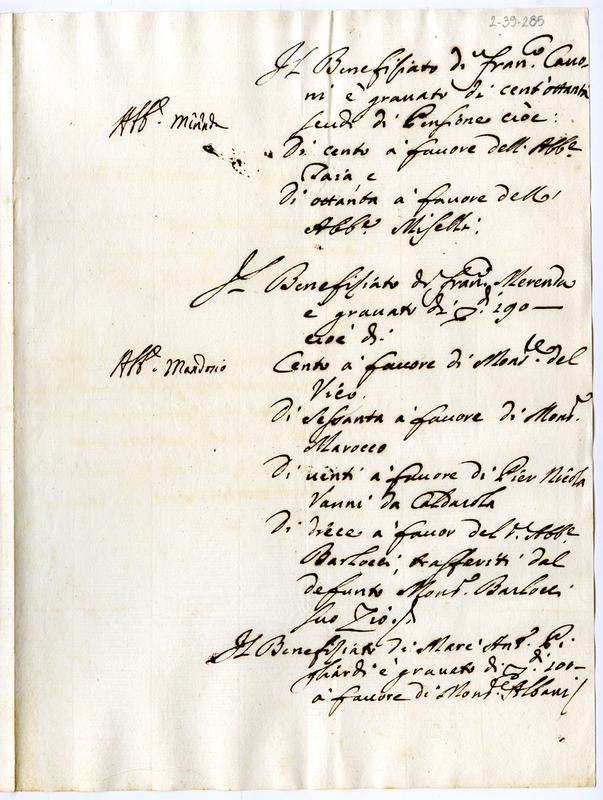 2-39-285
Il Benefisiato di Fran.co Cauo-
ni è grauato di cent'ottanta
scudi di Pensione cioè:
Abb.e
Di cento à fauore dell Abb.e
Paia e
Di ottanta à fauore dell'
Abb.e Miselli;
Il Benefisiato di Fran.co Merenda
è grauato di 190 —
cioè di
Abb.e Mandosio
Cento à fauore di Mons.re del
Vico.
Di sessanta à fauore di Mons.r
Marocco
Di uenti à fauore di Pier Nicola
Vanni da Caldarola
Di diece à fauor del s. Abb.e
Barlocci, trasferiti dal
defunto Mons.r Barlocci
suo Zio
Il Benefisiato di Marc'Ant.o Pi-
è grauato di 100—
à fauore di Mons.r Albani